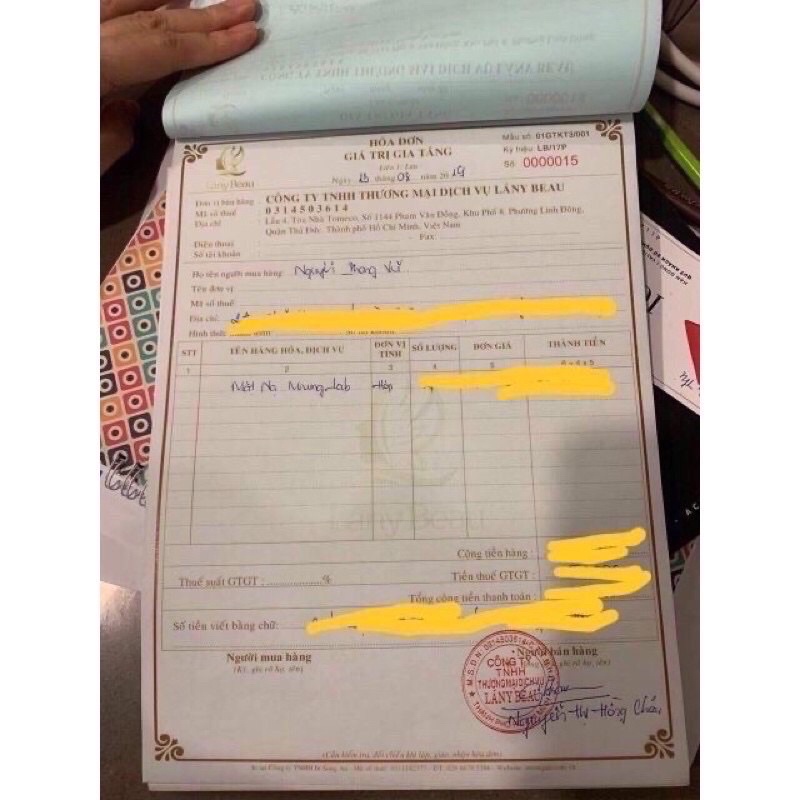 HÓA ĐƠN
GIÁ TRỊ GIA TĂNG
Liên 1: Lưu
Ngày 13 tháng 08 năm 2019
Mẫu số: 01GTKT3/001
Ký hiệu: LB/17P
Số: 0000015
Lany Beau
Đơn vị bán hàng: CÔNG TY TNHH THƯƠNG MẠI DỊCH VỤ LÂNY BEAU
Mã số thuế: 0314503614
Địa chỉ: Lầu 4, Tòa Nhà Tomeco, Số 1144 Phạm Văn Đồng, Khu Phố 6, Phường Linh Đông,
Quận Thủ Đức, Thành phố Hồ Chí Minh, Việt Nam
Điện thoại: - Fax:
Số tài khoản:
Họ tên người mua hàng: Nguyễn Vũ
Tên đơn vị
Mã số thuế
Địa chỉ:
Hình thức
STT TÊN HÀNG HÓA, DỊCH VỤ ĐƠN VỊ TÍNH SỐ LƯỢNG ĐƠN GIÁ THÀNH TIỀN
1 2 3 4 5 6 = 4 x 5
Mặt Nạ Nhung Lab Hộp
Lany Beau
Cộng tiền hàng:
Thuế suất GTGT: % Tiền thuế GTGT:
Tổng cộng tiền thanh toán:
Số tiền viết bằng chữ:
Người mua hàng Người bán hàng
(Ký, ghi rõ họ, tên)
CÔNG TY
TNHH
THƯƠNG MẠI DỊCH VỤ
LÂNY BEAU
Nguyễn Thị Hồng
(Cần kiểm tra, đối chiếu khi lập, giao, nhận hóa đơn)